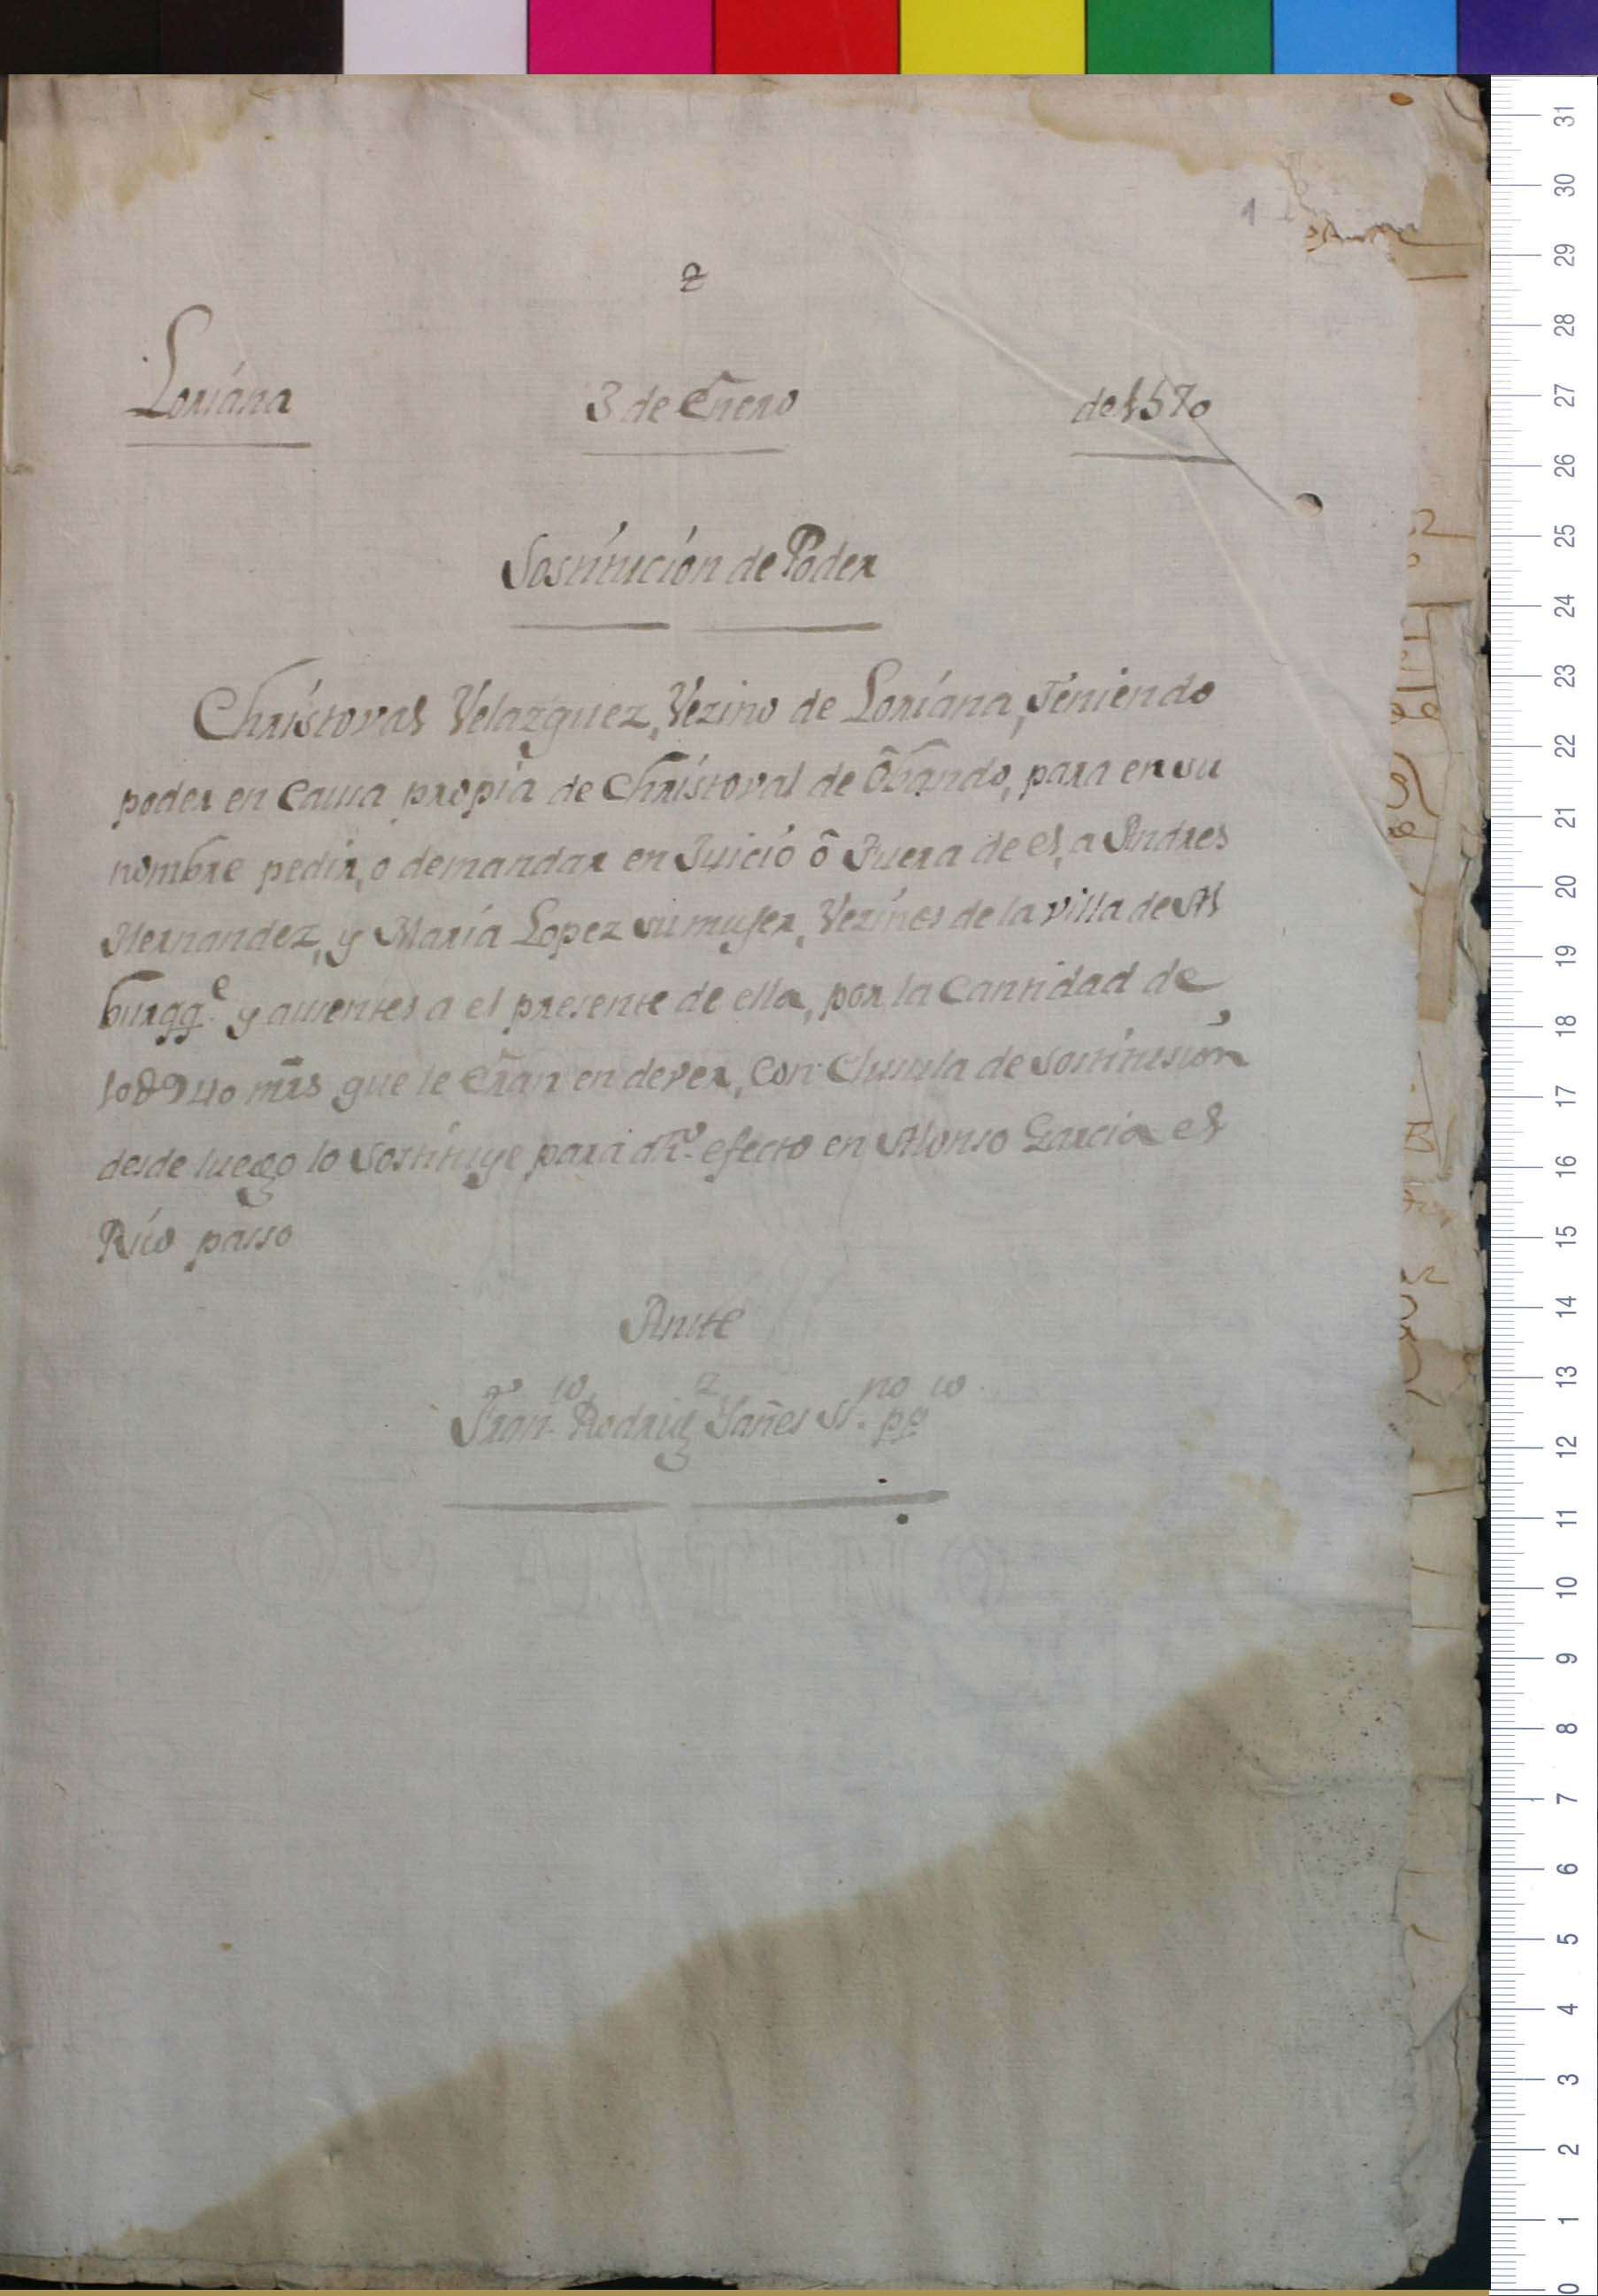 1
2
Loriána 3 de Enero de 1570
Sostitución de Poder
Christoval Velazquez, Vezino de Loriana, teniendo
poder en causa propia de Christoval de Obando, para en su
nombre pedir, o demandar en Juicio ô fuera de el, a Andres
Hernandez, y Maria Lopez su mujer, Vezinos de la villa de Al
burqq.e y ausentes a el presente de ella, por la Cantidad de
10940 mrs que le eran en dever, con Clusula de sostituision
desde luego lo sostituye para dho. efecto en Alonso Garcia el
Rico passo
Ante
Fran.co Rodrigz Yañes Ss.no ppco